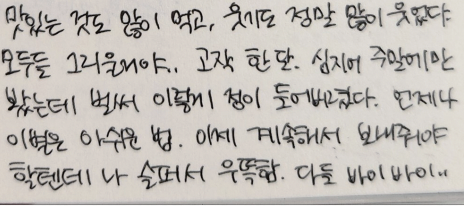 맛있는 것도 많이 먹고, 웃기도 정말 많이 웃었다
모두들 그리울거야.. 고작 한 달. 심지어 주말에만
봤는데 벌써 이렇게 정이 들어버렸다. 언제나
이별은 아쉬운 법. 이제 계속해서 보내줘야
할텐데 나 슬퍼서 우뜩함. 다들 바이바이..